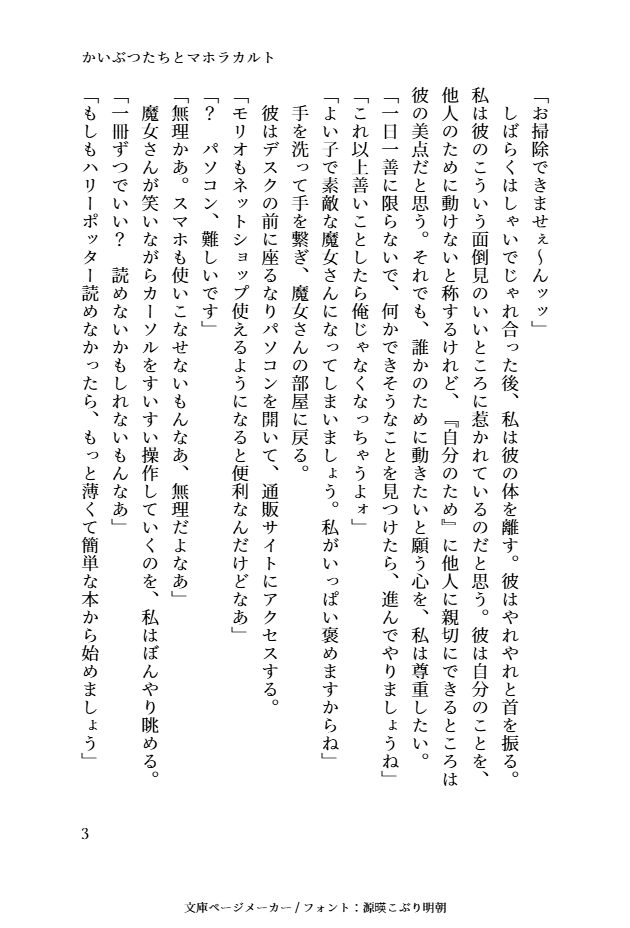 かいぶつたちとマホラカルト
「お掃除できませぇ～んッッ」
　しばらくはしゃいでじゃれ合った後、私は彼の体を離す。彼はやれやれと首を振る。
私は彼のこういう面倒見のいいところに惹かれているのだと思う。彼は自分のことを、
他人のために動けないと称するけれど、『自分のため』に他人に親切にできるところは
彼の美点だと思う。それでも、誰かのために動きたいと願う心を、私は尊重したい。
「一日一善に限らないで、何かできそうなことを見つけたら、進んでやりましょうね」
「これ以上善いことしたら俺じゃなくなっちゃうよォ」
「よい子で素敵な魔女さんになってしまいましょう。私がいっぱい褒めますからね」
　手を洗って手を繋ぎ、魔女さんの部屋に戻る。
　彼はデスクの前に座るなりパソコンを開いて、通販サイトにアクセスする。
「モリオもネットショップ使えるようになると便利なんだけどなあ」
「？　パソコン、難しいです」
「無理かあ。スマホも使いこなせないもんなあ、無理だよなあ」
　魔女さんが笑いながらカーソルをすいすい操作していくのを、私はぼんやり眺める。
「一冊ずつでいい？　読めないかもしれないもんなあ」
「もしもハリーポッター読めなかったら、もっと薄くて簡単な本から始めましょう」
3
文庫ページメーカー / フォント：源暎こぶり明朝